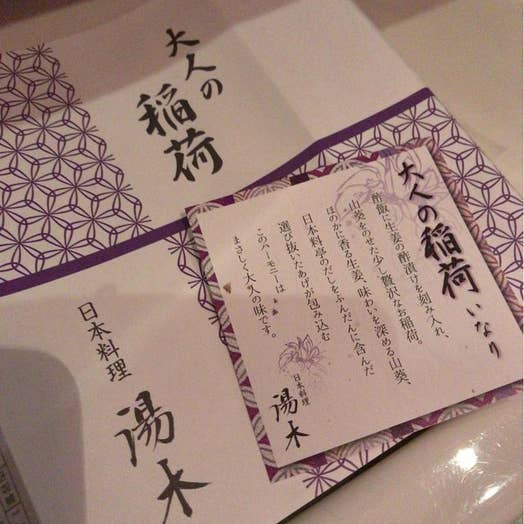 大人の
稲荷
日本料理
湯木
大人の稲荷いなり
酢飯に生姜の酢漬けを刻み入れ、
山葵をのせた少し贅沢なお稲荷。
ほのかに香る生姜、味わいを深める山葵、
日本料亭のだしをふんだんに含んだ
選び抜いたあげが包み込む
このハーモニーは
まさしく大人の味です。
日本料理
湯木